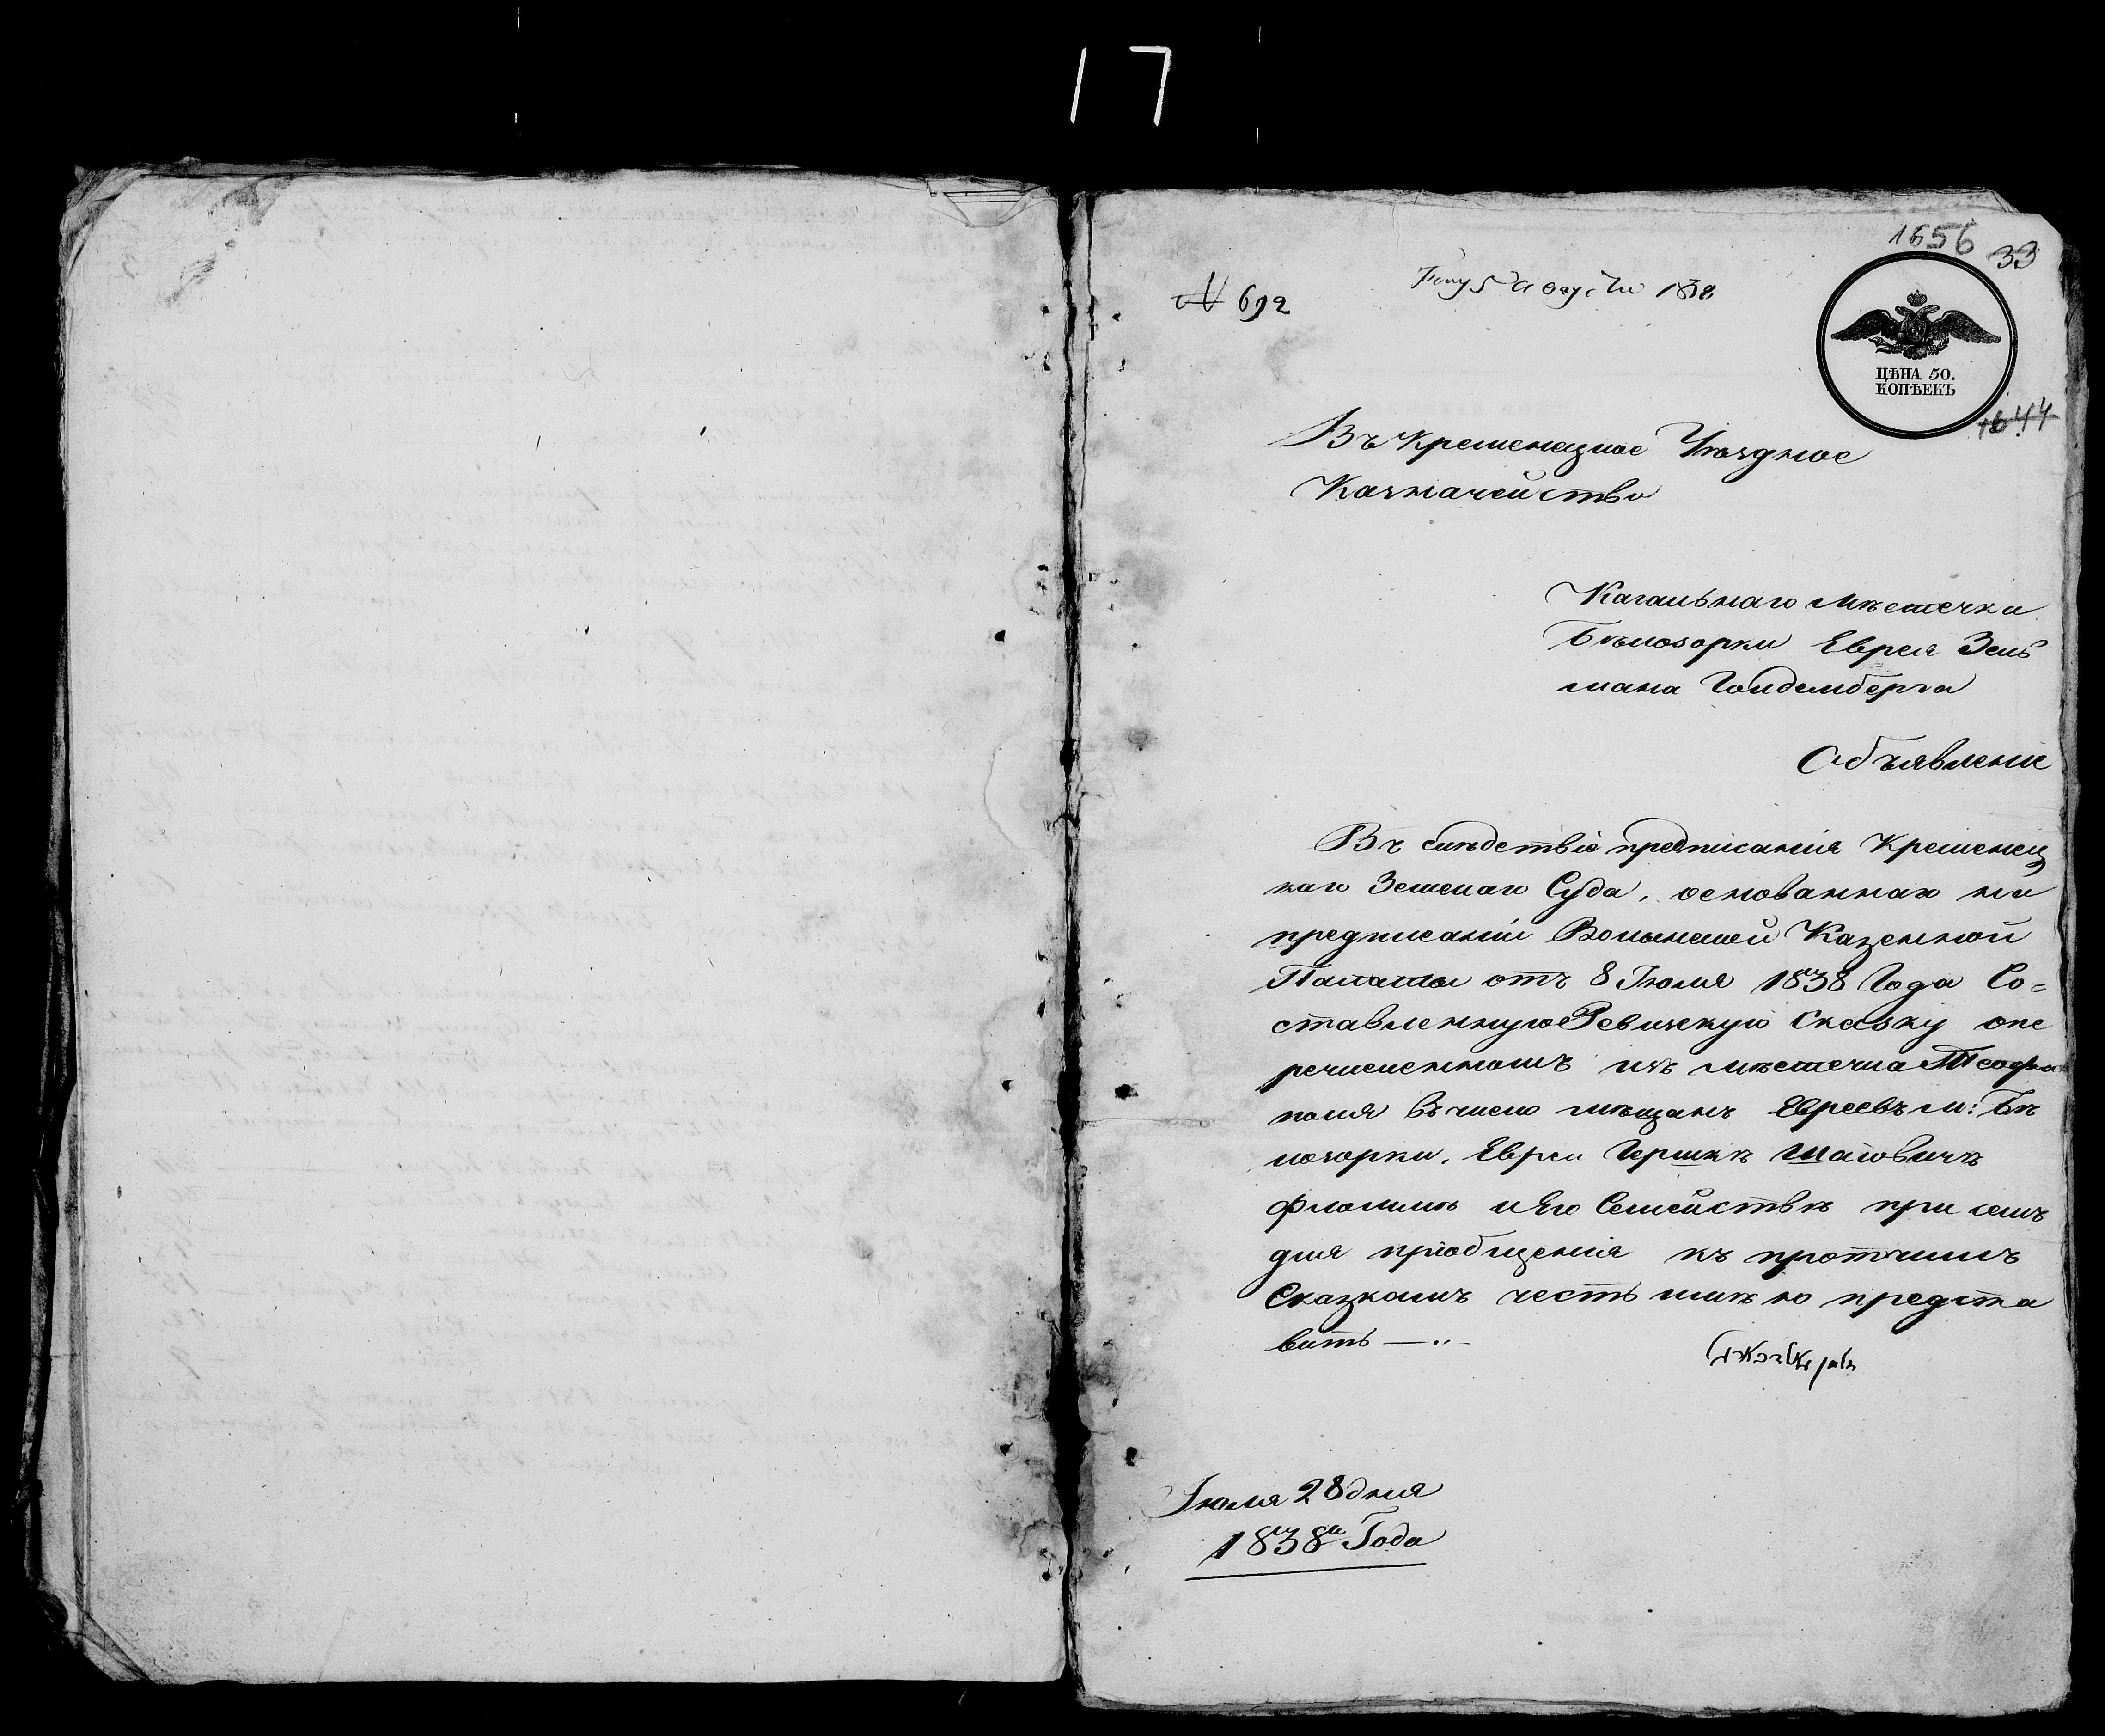 17
1656 33
№ 692
Полу 5 Августа 1838
ЦѢНА 50.
КОПѢЕКЪ
1644
Въ Кременецкое Уѣздное
Казначейство
Кагальнаго мѣстечка
Бѣлозорки Еврея Зель
мана Голдемберга
Объявленіе
Въ слѣдствіе предписанія Кременец
каго Земскаго Суда, основаннаго на
предписаніи Волынской Казенной
Палаты отъ 8 Іюля 1838 Года Со=
ставленную Ревизскую Сказку опе
речисленномъ изъ мѣстечка Теофи
поля въ число мѣщанъ Евреевъ м: Бѣ
лозорки, Евреи Гершкѣ
и Его Семействѣ при семъ
для пріобщенія къ протчимъ
Сказкамъ честь имѣю предста
вить —..–
Іюля 28 дня
1838го Года